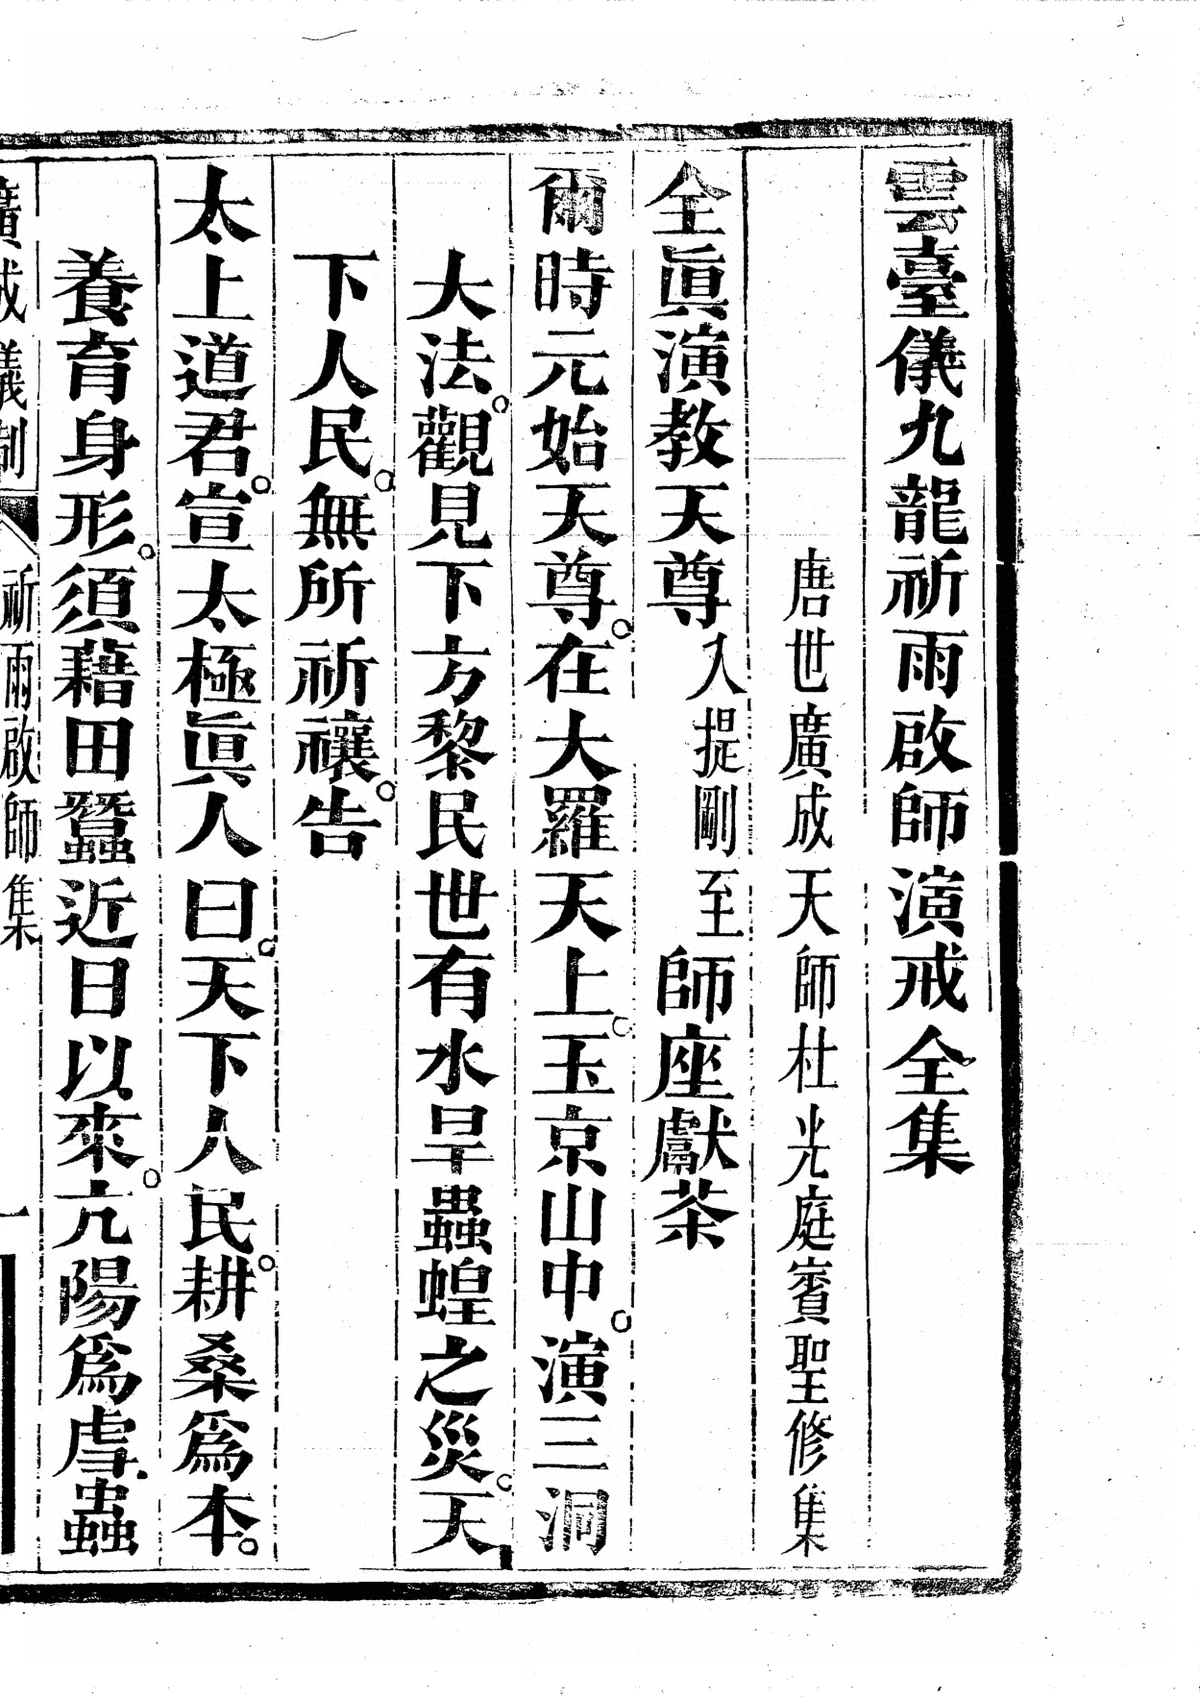 雲臺儀九龍祈雨啟師演戒全集
唐世廣成天師杜光庭賓聖修集
全眞演教天尊入提剛至師座獻茶
爾時元始天尊。在大羅天上。玉京山中。演三洞
大法。觀見下方黎民世有水旱蟲蝗之災。天
下人民。無所祈禳。告
太上道君。宣太極眞人曰。天下人民。耕桑爲本。
養育身形。須藉田蠶近日以來。亢陽爲虐。蟲
廣成儀制 祈雨啟師集 一